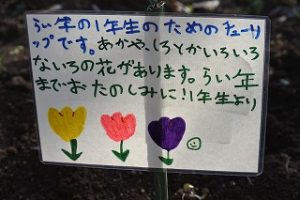 らい年の1年生のためのチューリ
ップです。あかや、しろとかいろいろ
ないろの花があります。らい年
までおたのしみに!1年生より